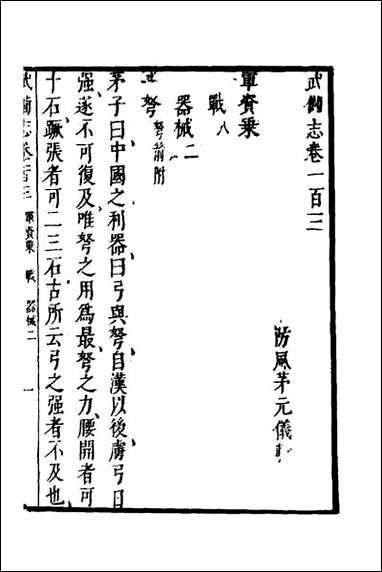 武備志卷一百三
防風茅元儀輯
軍資乘
戰八
器械二
弩 弩箭附
茅子曰中國之利器曰弓與弩自漢以後虜弓日
強遂不可復及唯弩之用爲最弩之力腰開者可
十石蹶張者可二三石古所云弓之強者不及也
武備志卷一百三 軍資乘 戰 器械二 一